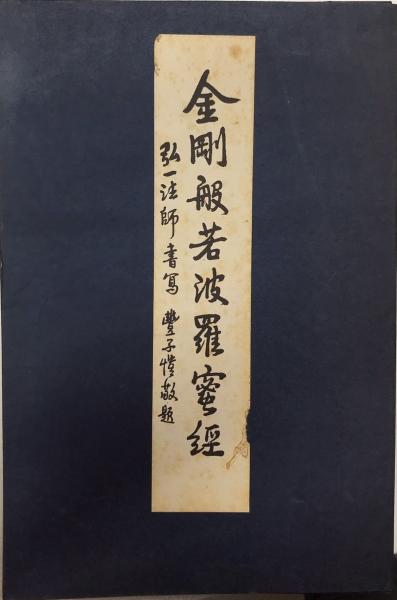 金剛般若波羅蜜經
弘一法師書寫 豐子愷敬題